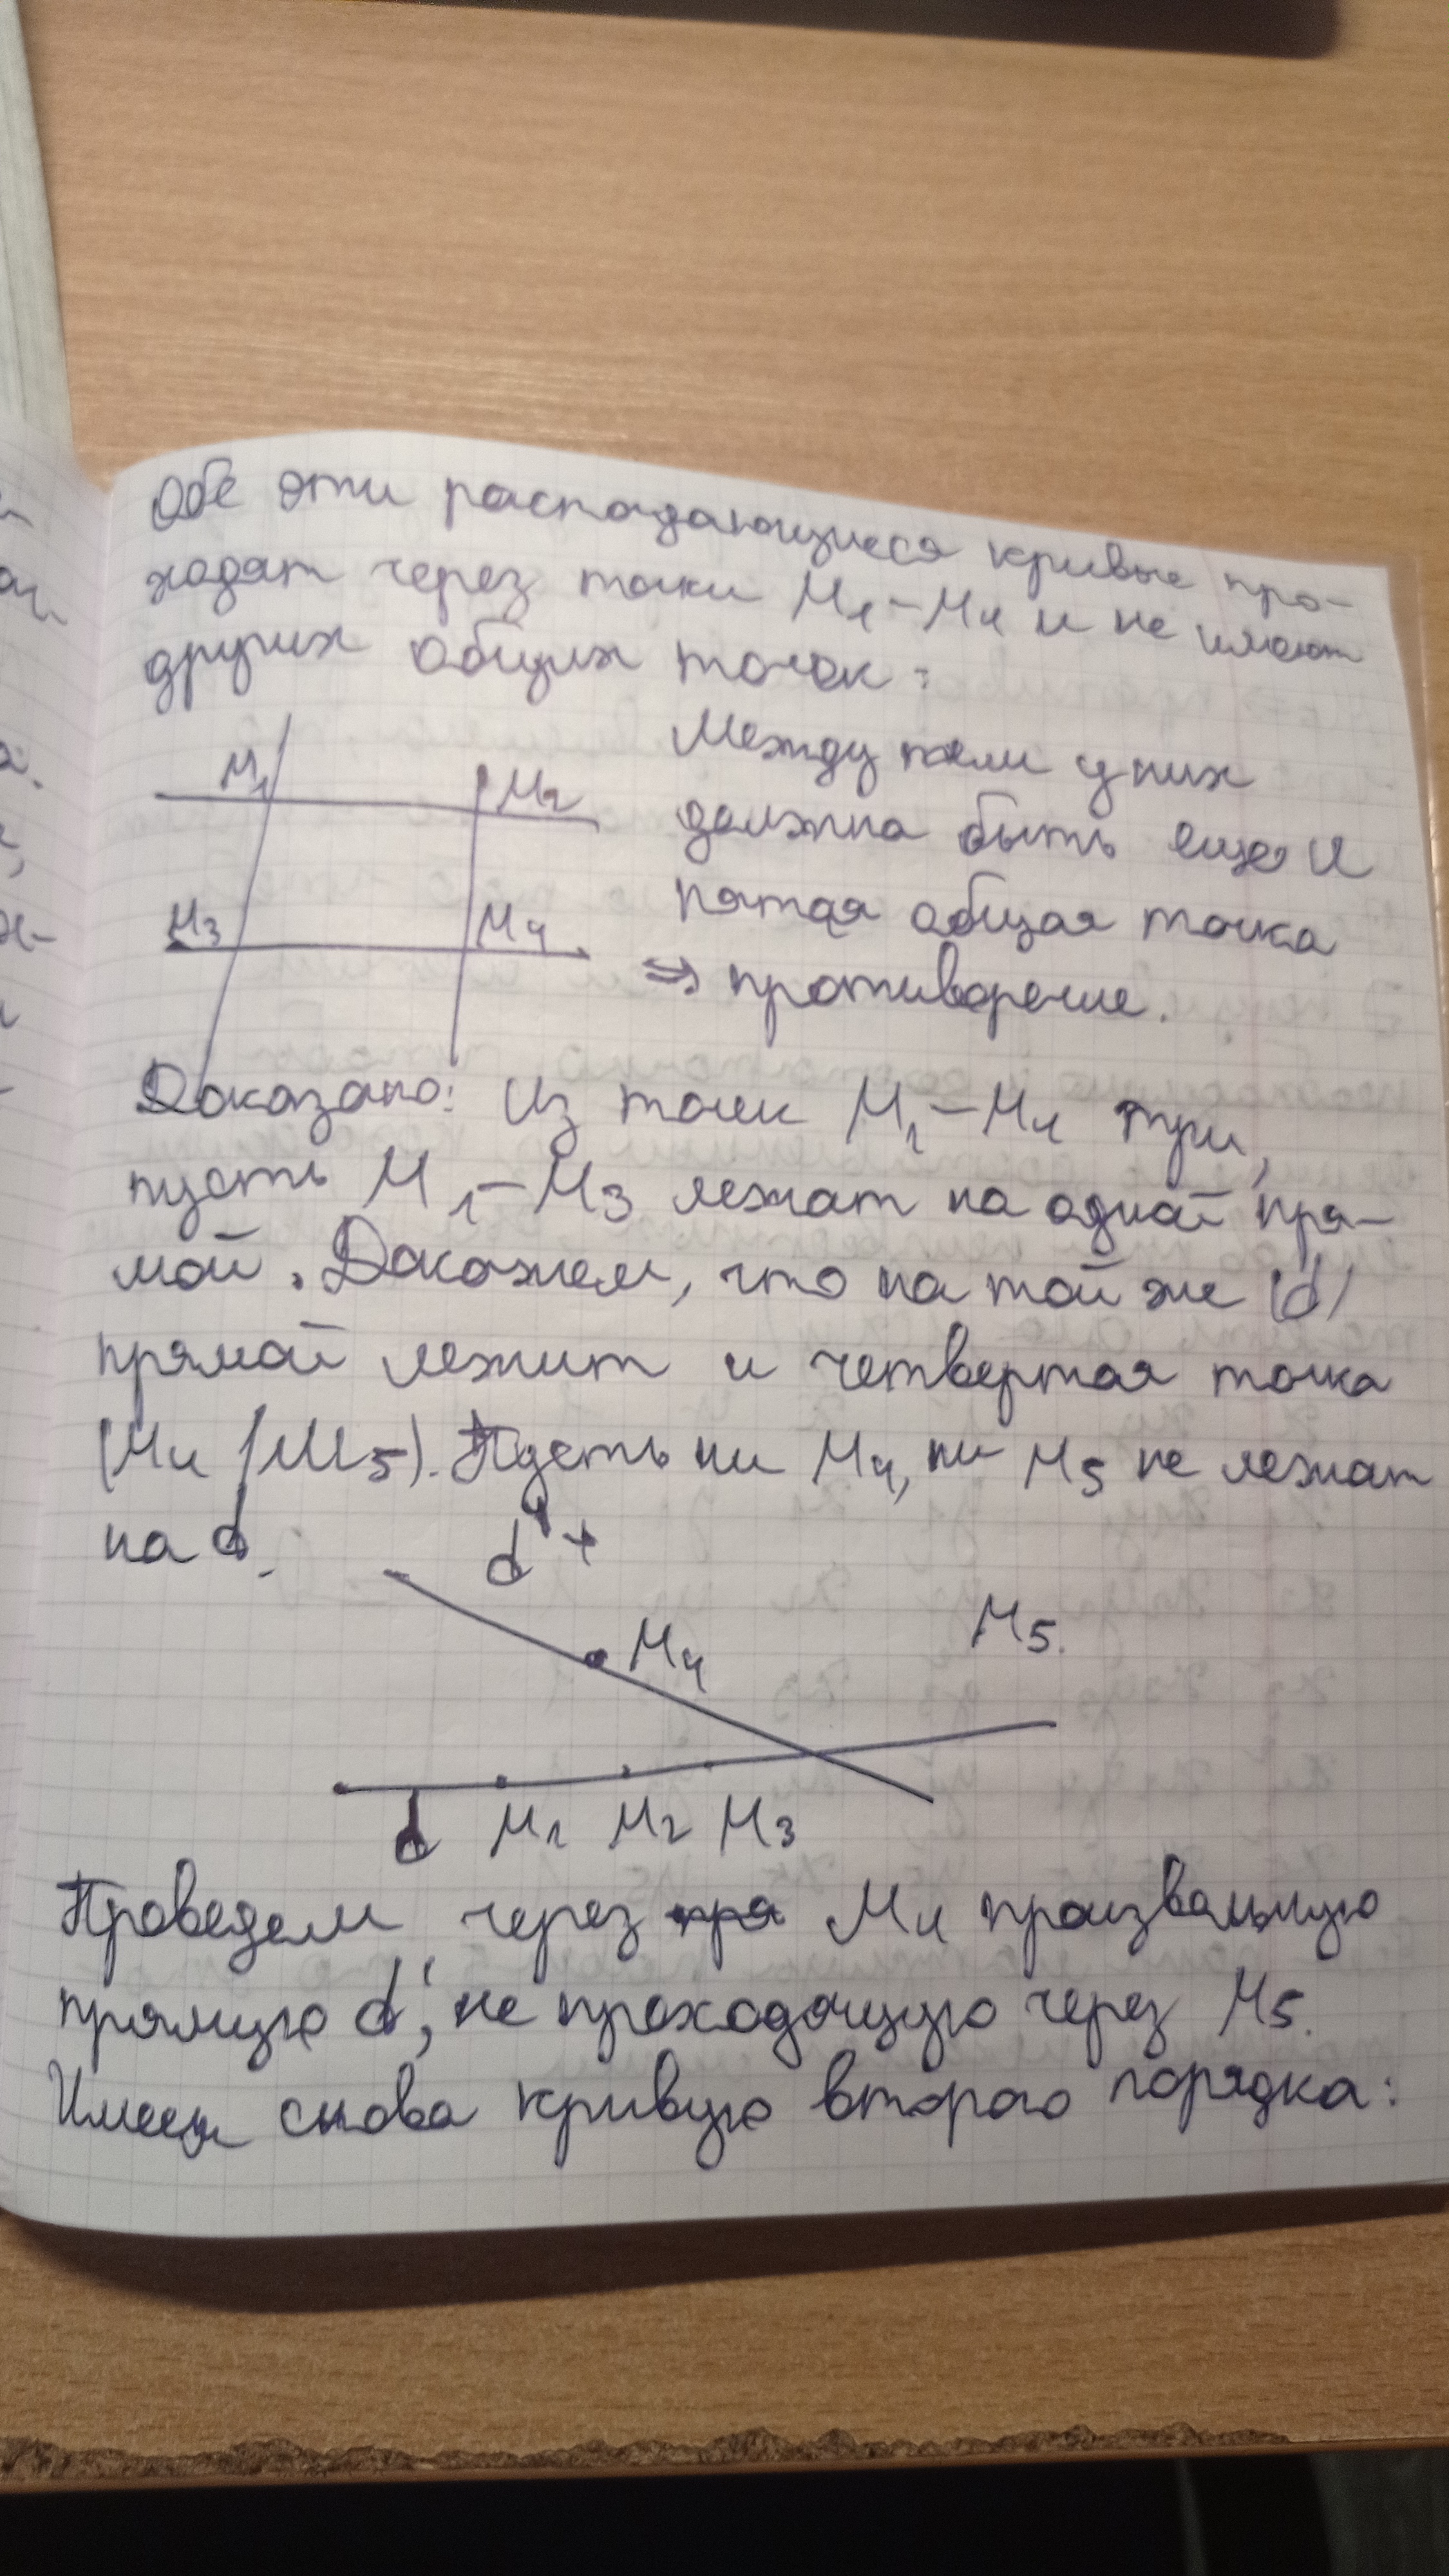 Обе эти распадающиеся кривые про-
ходят через точки M₁-M₄ и не имеют
других общих точек:
M₁
M₂
M₃
M₄
Между тем у них
должна быть еще и
пятая общая точка
⇒ противоречие.
Доказано: Из точек M₁-M₄ три,
пусть M₁-M₃ лежат на одной пря-
мой. Докажем, что на той же (d)
прямой лежит и четвертая точка
(M₄ / M₅). Пусть ни M₄, ни M₅ не лежат
на d.
d'
M₄
M₅
d M₁ M₂ M₃
Проведем через M₄ произвольную
прямую d', не проходящую через M₅.
Имеем снова кривую второго порядка: